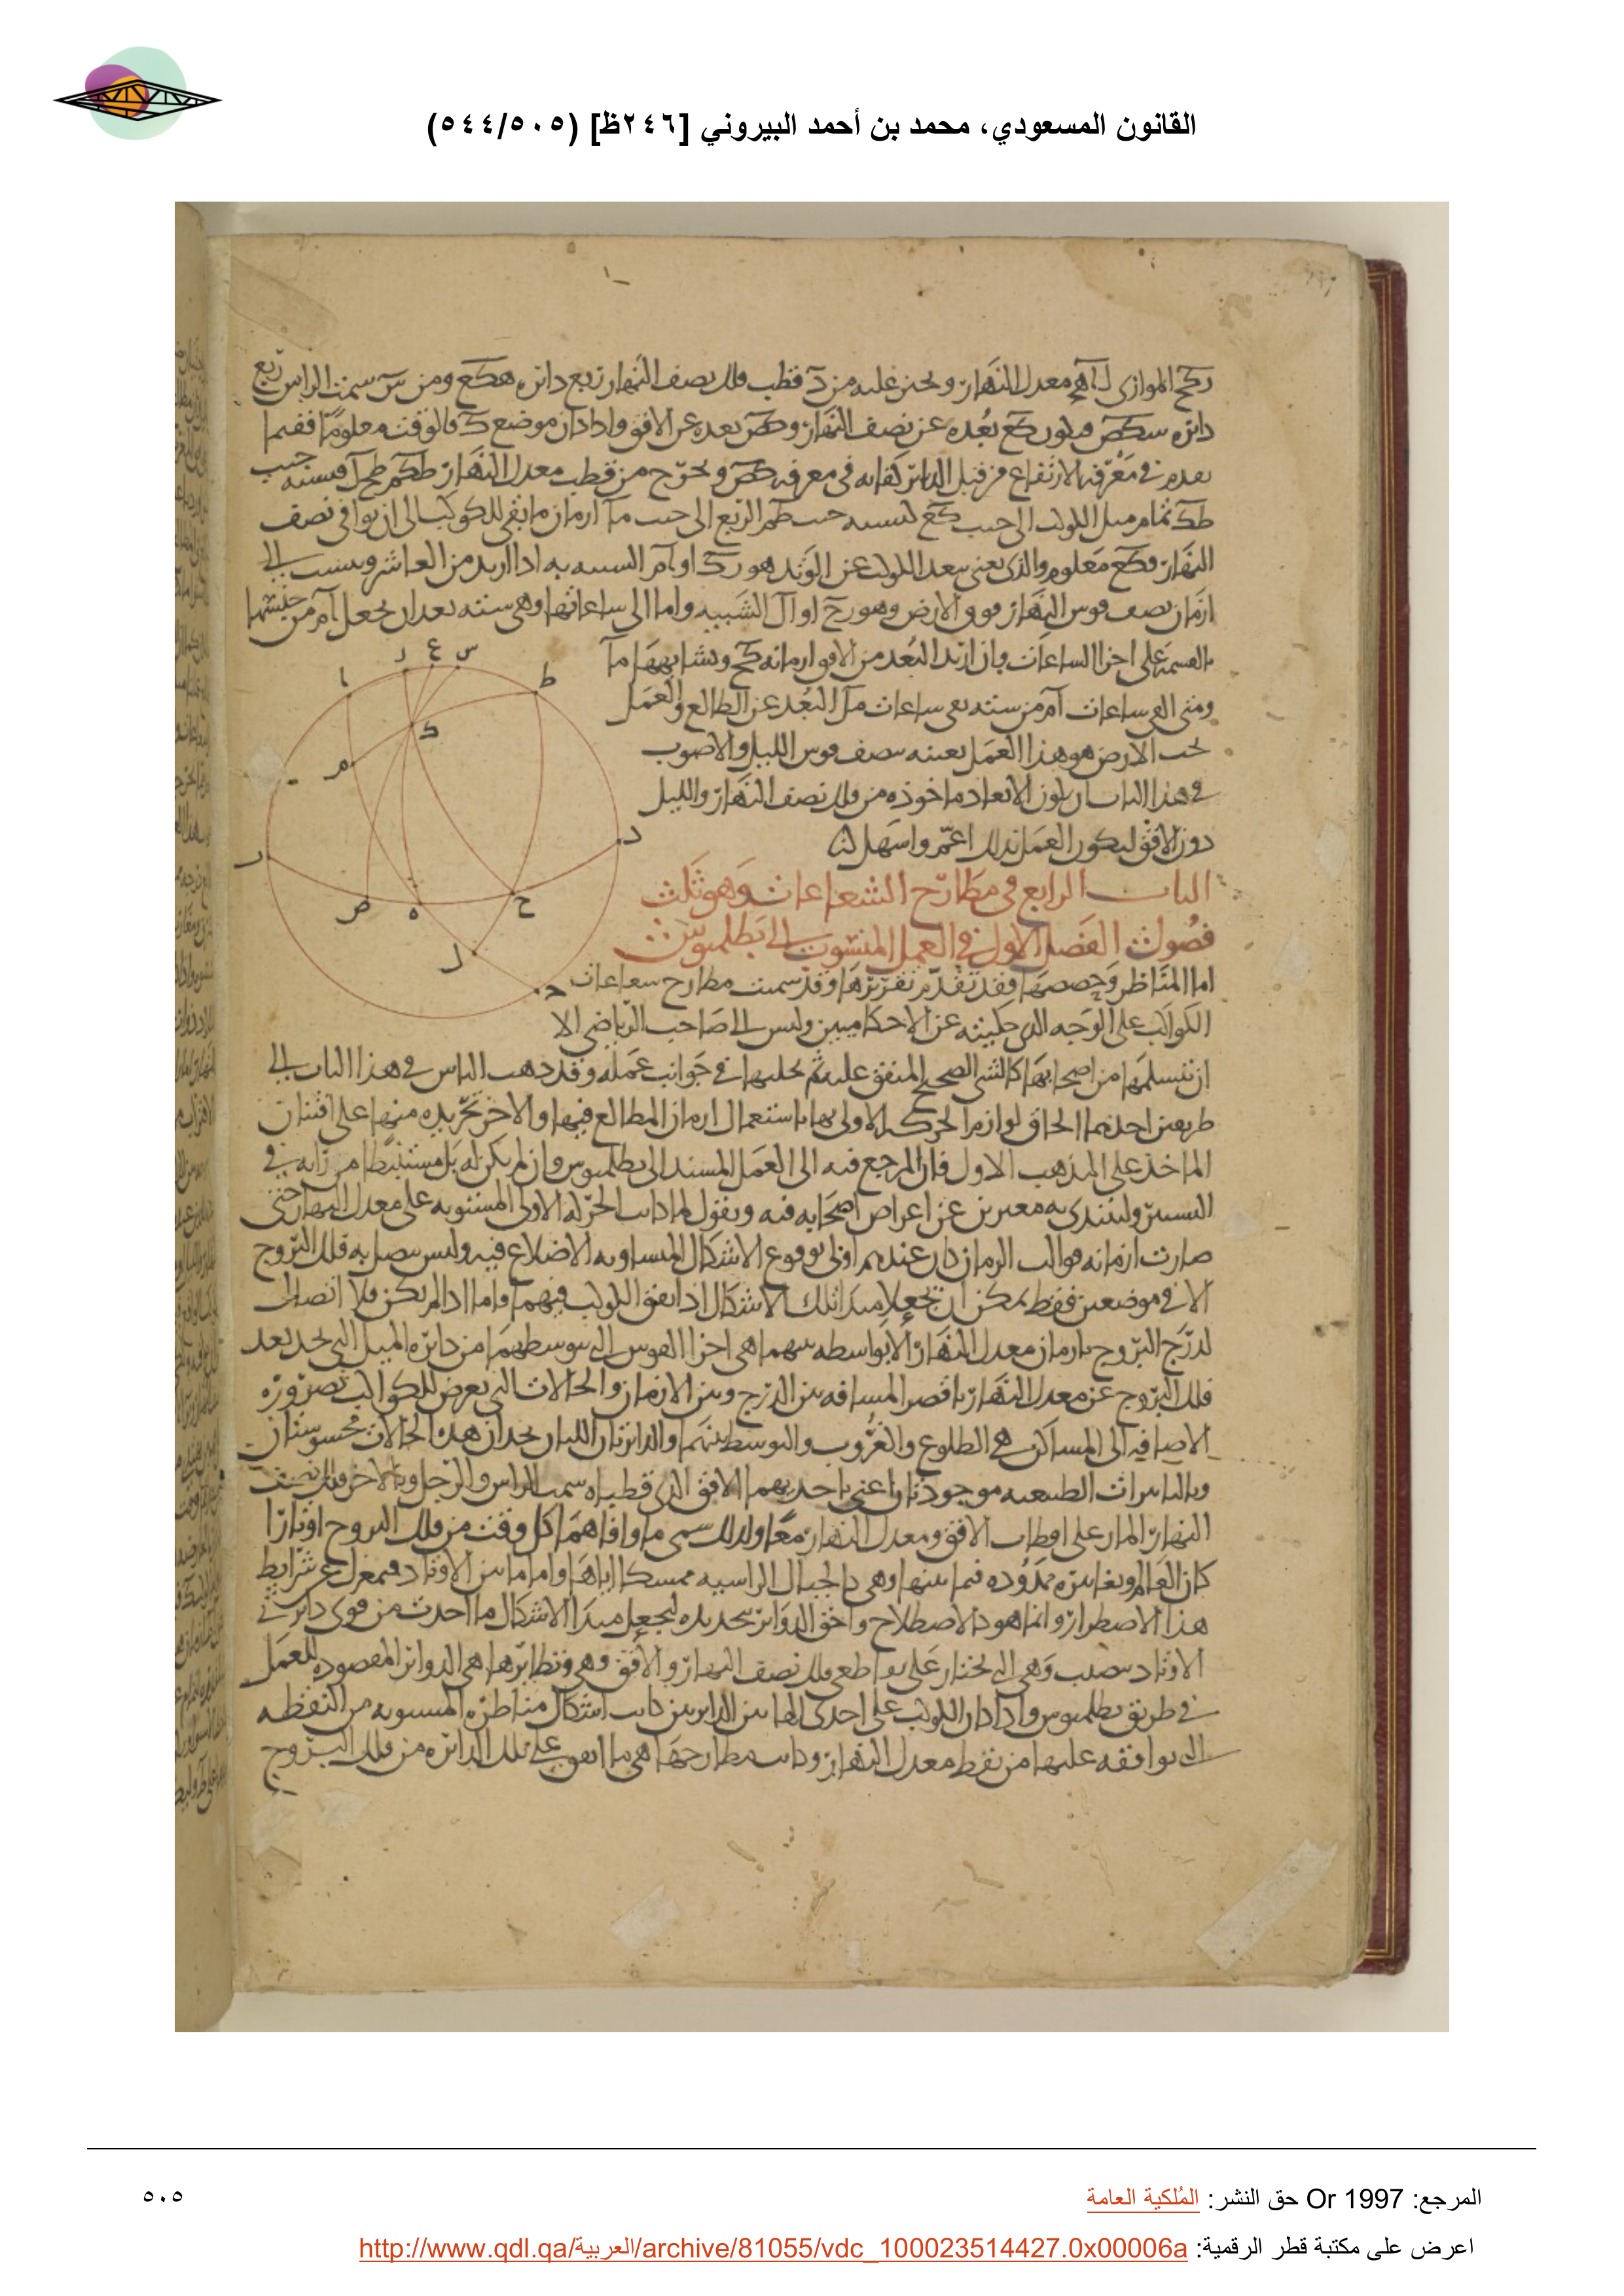 القانون المسعودي، محمد بن أحمد البيروني [٢٤٦ظ] (٥٤٤/٥٠٥)
الموازى معدل النهار ونحيز عليه من قطب فلك نصف النهار ربع دائره هكع ومن س سمت الراس ربع
دائره سكص فيكون كع بعده عن نصف النهار وكص بعده عن الافق واذا كان موضع ك فى الوقت معلوما ففيما
من قبل الدائر كفايه فى معرفه كص ونخرج من قطب معدل النهار
طك تمام ميل الكوكب الى جيب كع
النهار فكع معلوم والذى يعنى ببعد الكوكب عن الوتد هو اذا اريد من العاشر وينسب الى
ازمان نصف قوس النهار فوق الارض وهو واما الى ساعاتها وهى سته بعد ان يجعل
بالقسمه على اجزا الساعات وان اريد البعد من الافق
ومتى القى ساعات من سته بقى ساعات البعد عن الطالع والعمل
تحت الارض هو هذا العمل بعينه بنصف قوس الليل والاصوب
فى هذا الباب ان يكون الابعاد ماخوذه من فلك نصف النهار والليل
دون الافق ليكون العمل بذلك اعم واسهل
الباب الرابع فى مطارح الشعاعات وهو ثلث
فصول الفصل الاول فى العمل المنسوب الى بطلميوس
اما المناظر وحصصها فقد تقدم تقريرها وقد سميت مطارح شعاعات
الكواكب على الوجه الذى حكيته عن الاحكاميين وليس الى صاحب الرياضى الا
ان يتسلمها من اصحابها كالشى الصحيح المتفق عليه ثم فى جوانب عمله وقد ذهب الناس فى هذا الباب الى
طريقين احدهما الحاق لوازم الحركه الاولى بها باستعمال ازمان المطالع فيها والاخر تجريده منها على افتنان
الماخذ على المذهب الاول فان المرجع فيه الى العمل المسند الى بطلميوس وان لم يكن له بل مستنبطا من رايه فى
التسيير ولنبتدى به معبرين عن اغراض اصحابه فيه ونقول لما كانت الحركه الاولى المستويه على معدل النهار حتى
صارت ازمانه قوالب الزمان كان عندهم اولى بوقوع الاشكال المتساويه الاضلاع فيه وليس يتصل به فلك البروج
الا فى موضعين فقط يمكن ان يجعلا مبدا تلك الاشكال اذا اتفق الكوكب فيهما واما اذا لم يكن فلا اتصال
لدرج البروج بازمان معدل النهار الا بواسطه بينهما هى اجزا القوس التى توسطهما من دائره الميل التى تحد بعد
فلك البروج عن معدل النهار باقصر المسافه بين الدرج وبين الازمان والحالات التى يعرض للكواكب بضروره
الاضافه الى المساكن هى الطلوع والغروب والتوسط بينهما والدائرتان اللتان تحدان هذه الحالات محسوستان
وبالتاثيرات الطبيعيه موجودتان اعنى باحديهما الافق الذى قطباه سمت الراس والرجل وبالاخر فلك نصف
النهار المار على اقطاب الافق ومعدل النهار معا ولذلك سمى ما وافاهما كل وقت من فلك البروج اوتارا
كان العالم وتغايره ممدوده فيما بينها وهى كالجبال الراسيه ممسكا اياها واما ما بين الاوتاد فبمعزل عن شرايط
هذا الاضطرار وانما هو الاصطلاح واحق الدوائر بتحديده ليجعل مبدا الاشكال ما احدث من قوى دائرتى
الاوتاد وهى التى تجتاز على تقاطعى فلك نصف النهار والافق وهى ونظائرها هى الدوائر المقصوده للعمل
فى طريق بطلميوس واذا كان الكوكب على احدى الدائرتين كانت اشكال مناظره المنسوبه من النقطه
التى توافقه عليها من نقط معدل النهار وكانت مطارحها هى ما اتفق على تلك الدائره من فلك البروج
س
ع
ر
ا
ط
ك
م
د
ص
ه
ح
ل
المرجع: Or 1997 حق النشر: المُلكية العامة
٥٠٥
اعرض على مكتبة قطر الرقمية: http://www.qdl.qa/العربية/archive/81055/vdc_100023514427.0x00006a